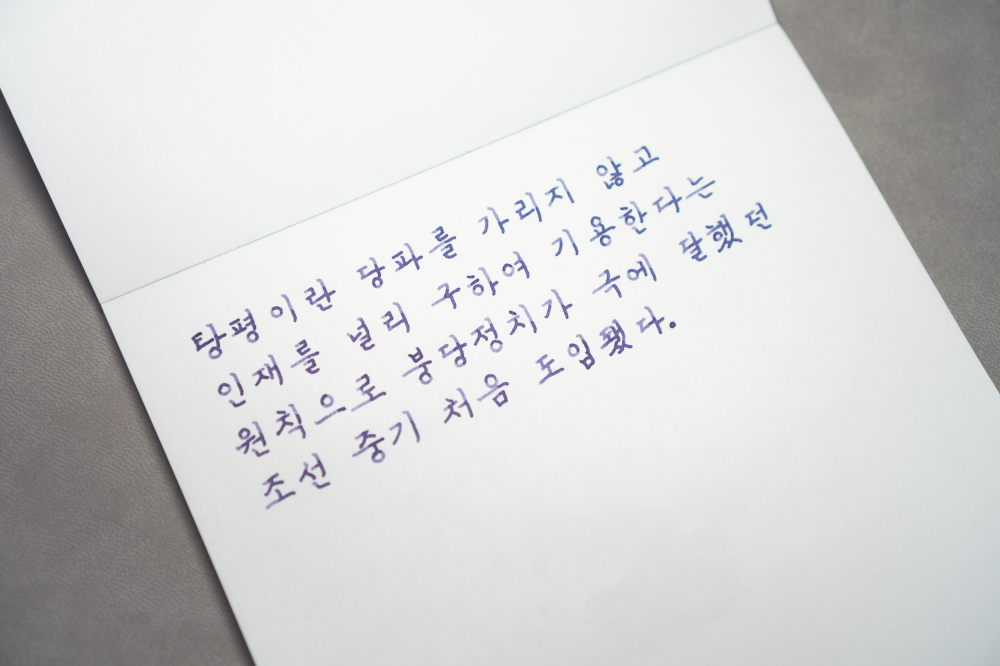 탕평이란 당파를 가리지 않고
인재를 널리 구하여 기용한다는
원칙으로 붕당정치가 극에 달했던
조선 중기 처음 도입됐다.